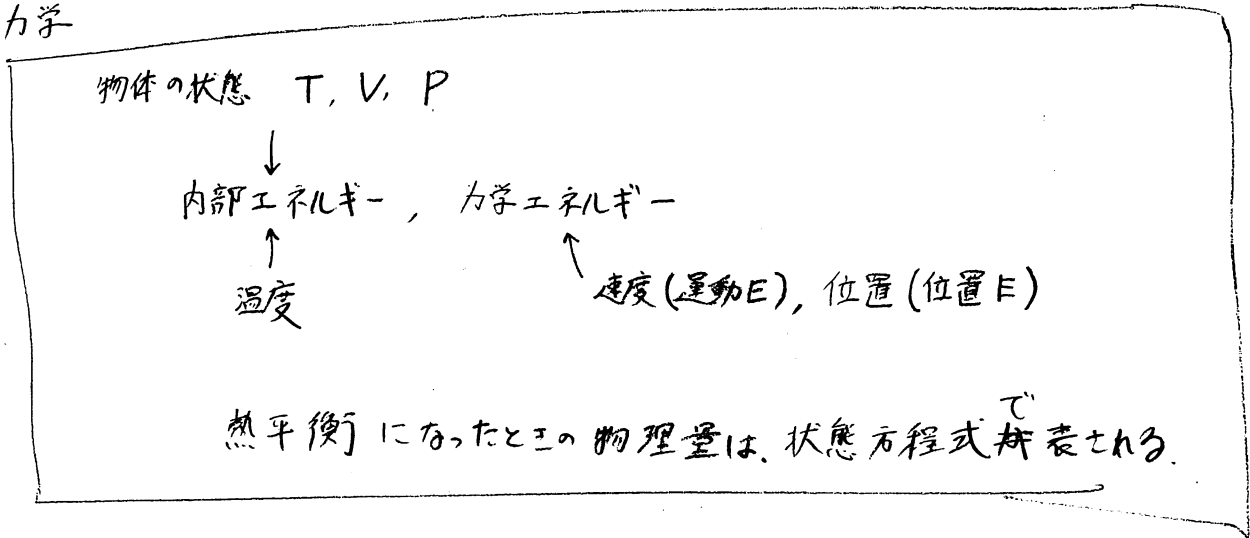 力学
物体の状態 T, V, P
↓
内部エネルギー, 力学エネルギー
↑ ↖
温度 速度(運動E), 位置(位置E)
熱平衡になったときの物理量は、状態方程式で表される.